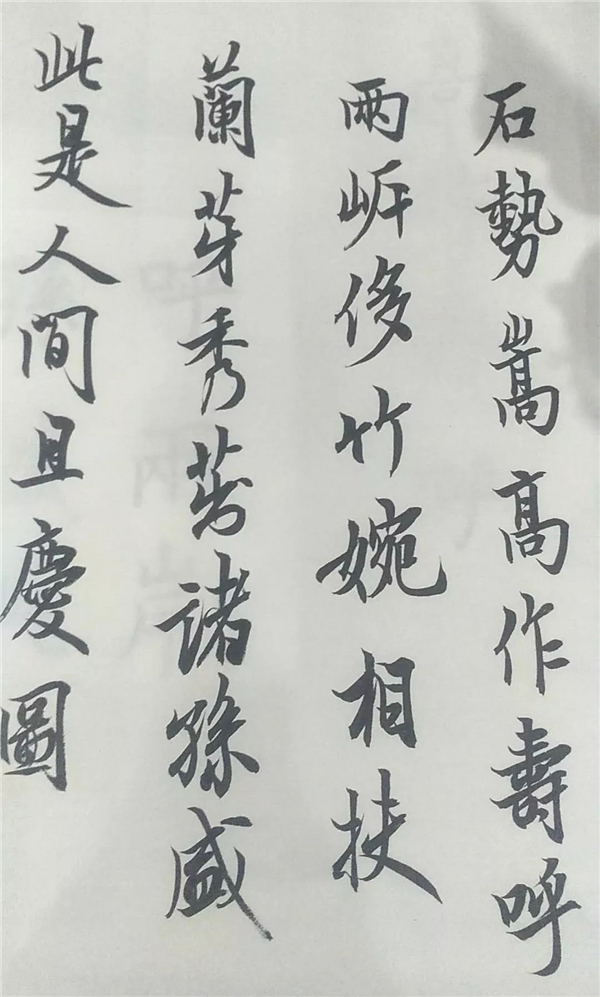 石勢嵩高作壽呼
兩岸修竹婉相扶
蘭芽秀茁諸孫盛
此是人間且慶圖